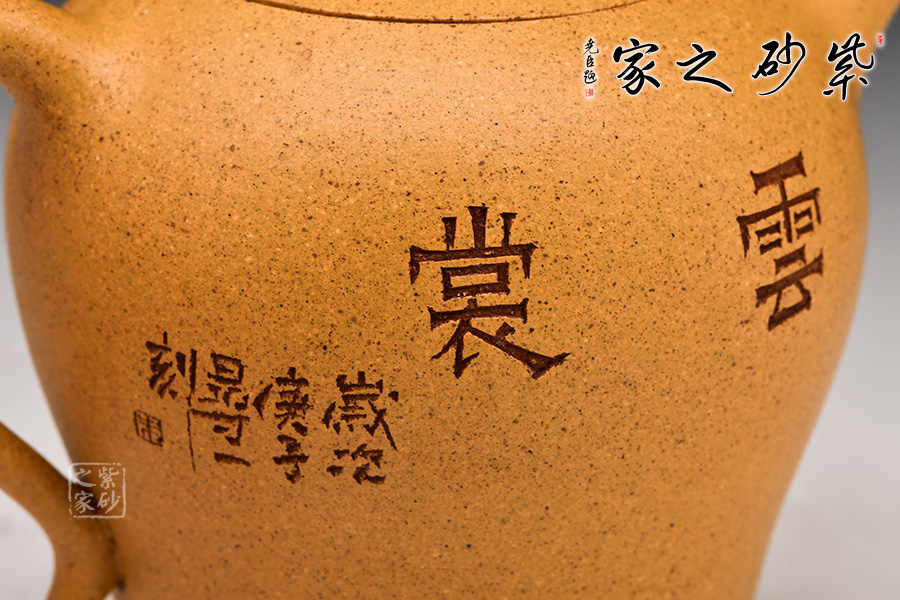 紫砂之家
尧臣题
雲裳
歲次
庚子
一
刻
紫砂
之家